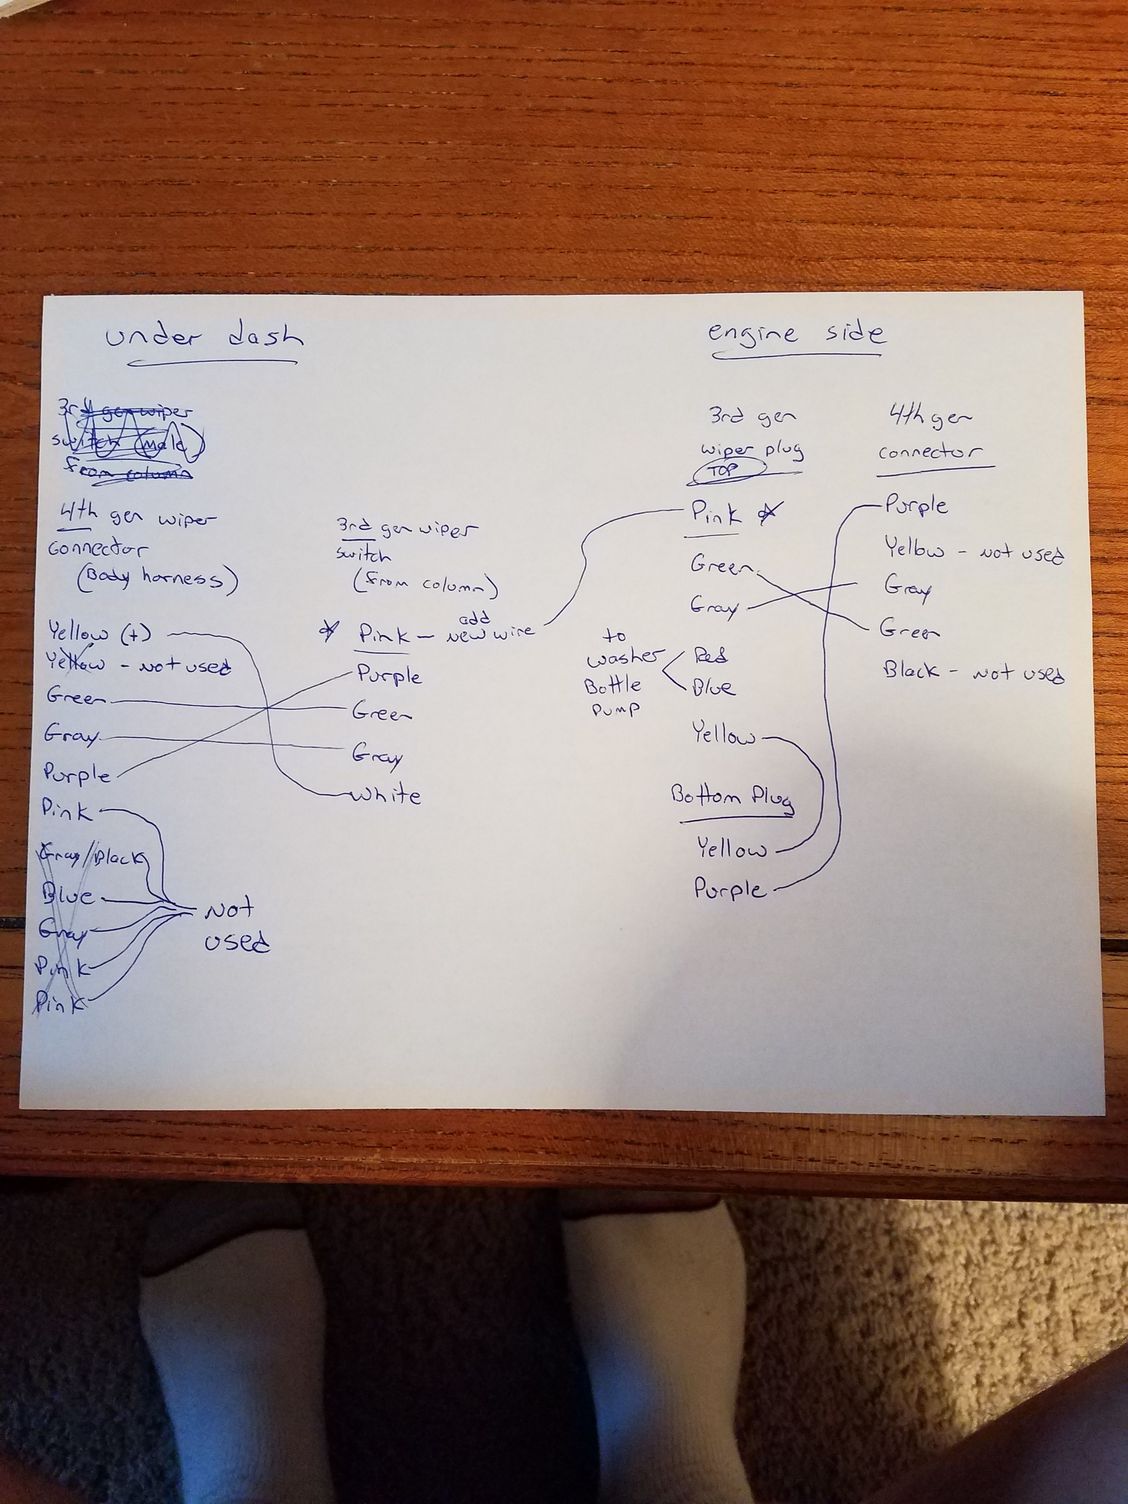 under dash
engine side
3rd gen wiper
switch (male)
from column
4th gen wiper
connector
(Body harness)
Yellow (+)
Yellow - not used
Green
Gray
Purple
Pink
Gray/Black
Blue
Gray
Pink
Pink
Not
used
3rd gen wiper
switch
(from column)
* Pink - add new wire
Purple
Green
Gray
White
3rd gen
wiper plug
TOP
Pink *
Green
Gray
to
washer
Bottle
Pump
Red
Blue
Yellow
Bottom Plug
Yellow
Purple
4th gen
connector
Purple
Yellow - not used
Gray
Green
Black - not used